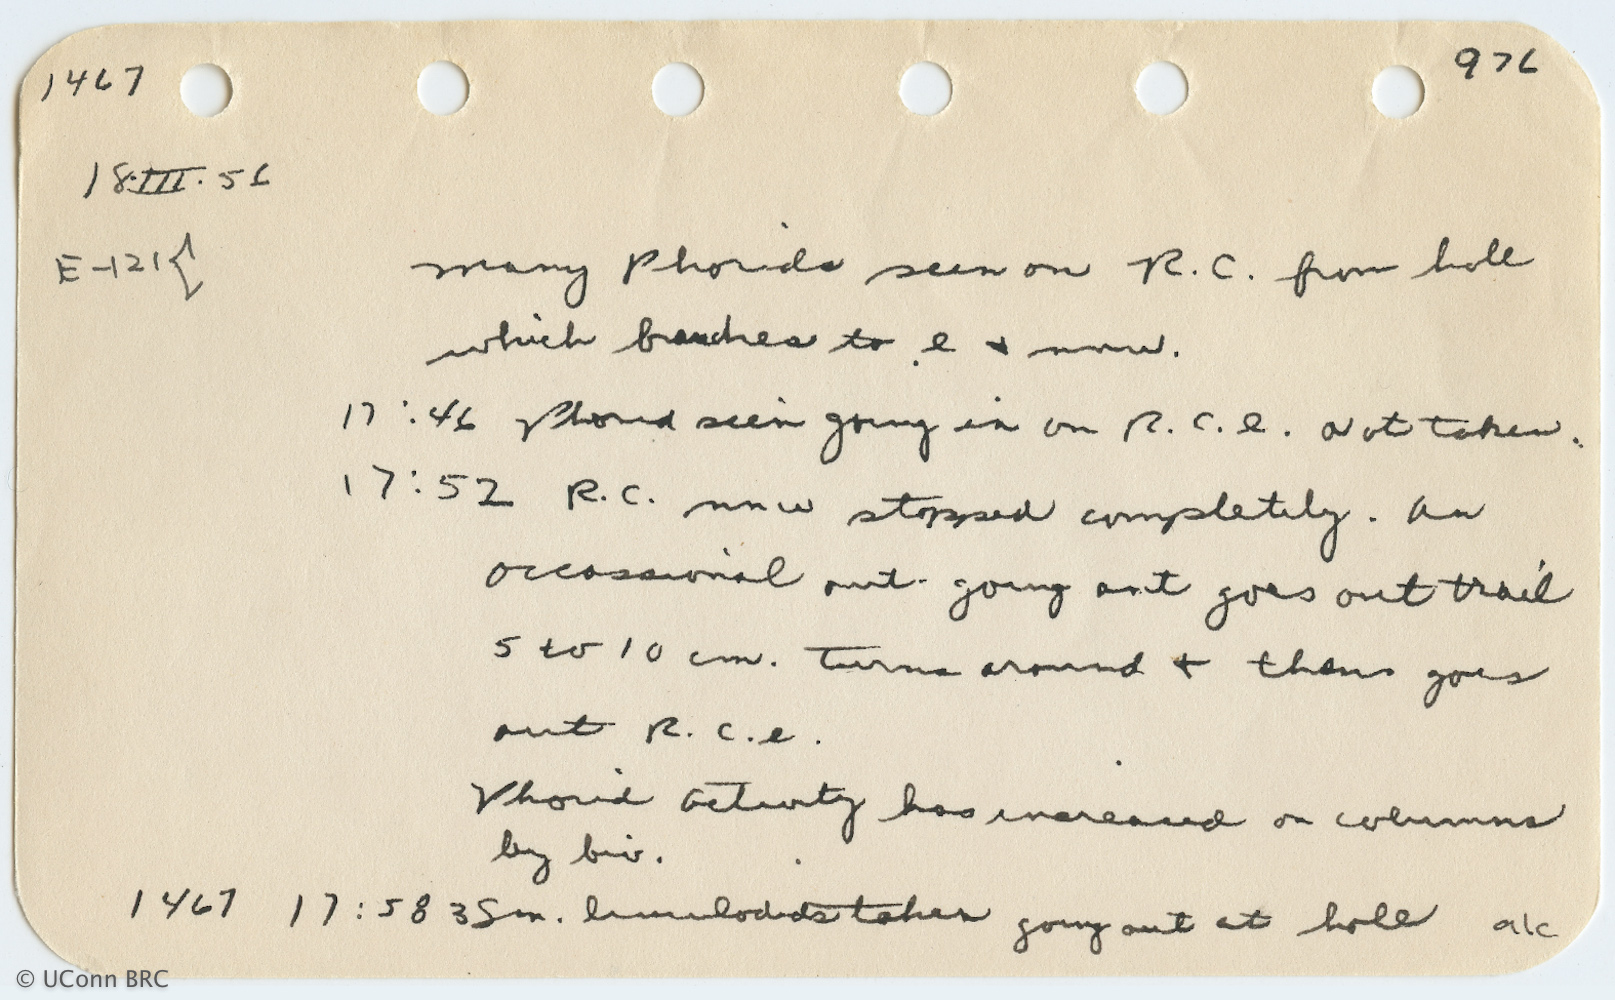 1467 976
18.III.56
E-121{ many Phorids seen on R.C. from hole
which branches to e + nnw.
17:46 Phorid seen going in on R.C.e. not taken.
17:52 R.C. nnw stopped completely. An
occassional out-going ant goes out trail
5 to 10 cm. turns around + then goes
out R.C.e.
Phorid activity has increased on columns
by biv.
1467 17:58 3 Sm. limulodids taken going out at hole alc
© UConn BRC